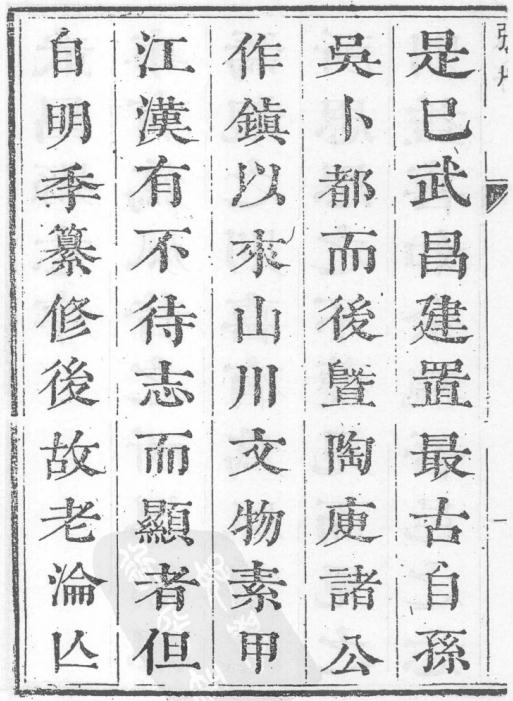 是巳武昌建置最古自孫
吳卜都而後曁陶庾諸公
作鎮以來山川文物素甲
江漢有不待志而顯者但
自明季纂修後故老淪亾